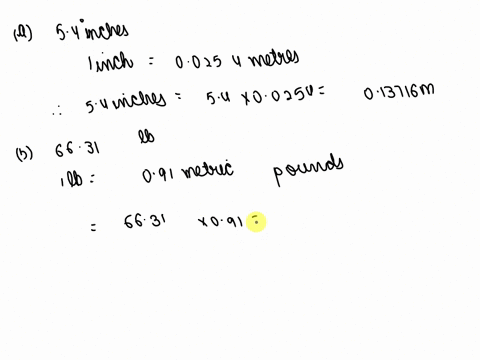 (a) 5.4 inches
1 inch = 0.0254 metres
∴ 5.4 inches = 5.4 × 0.0254 = 0.13716m
(b) 66.31 lb
1 lb = 0.91 metric pounds
= 66.31 × 0.91 =